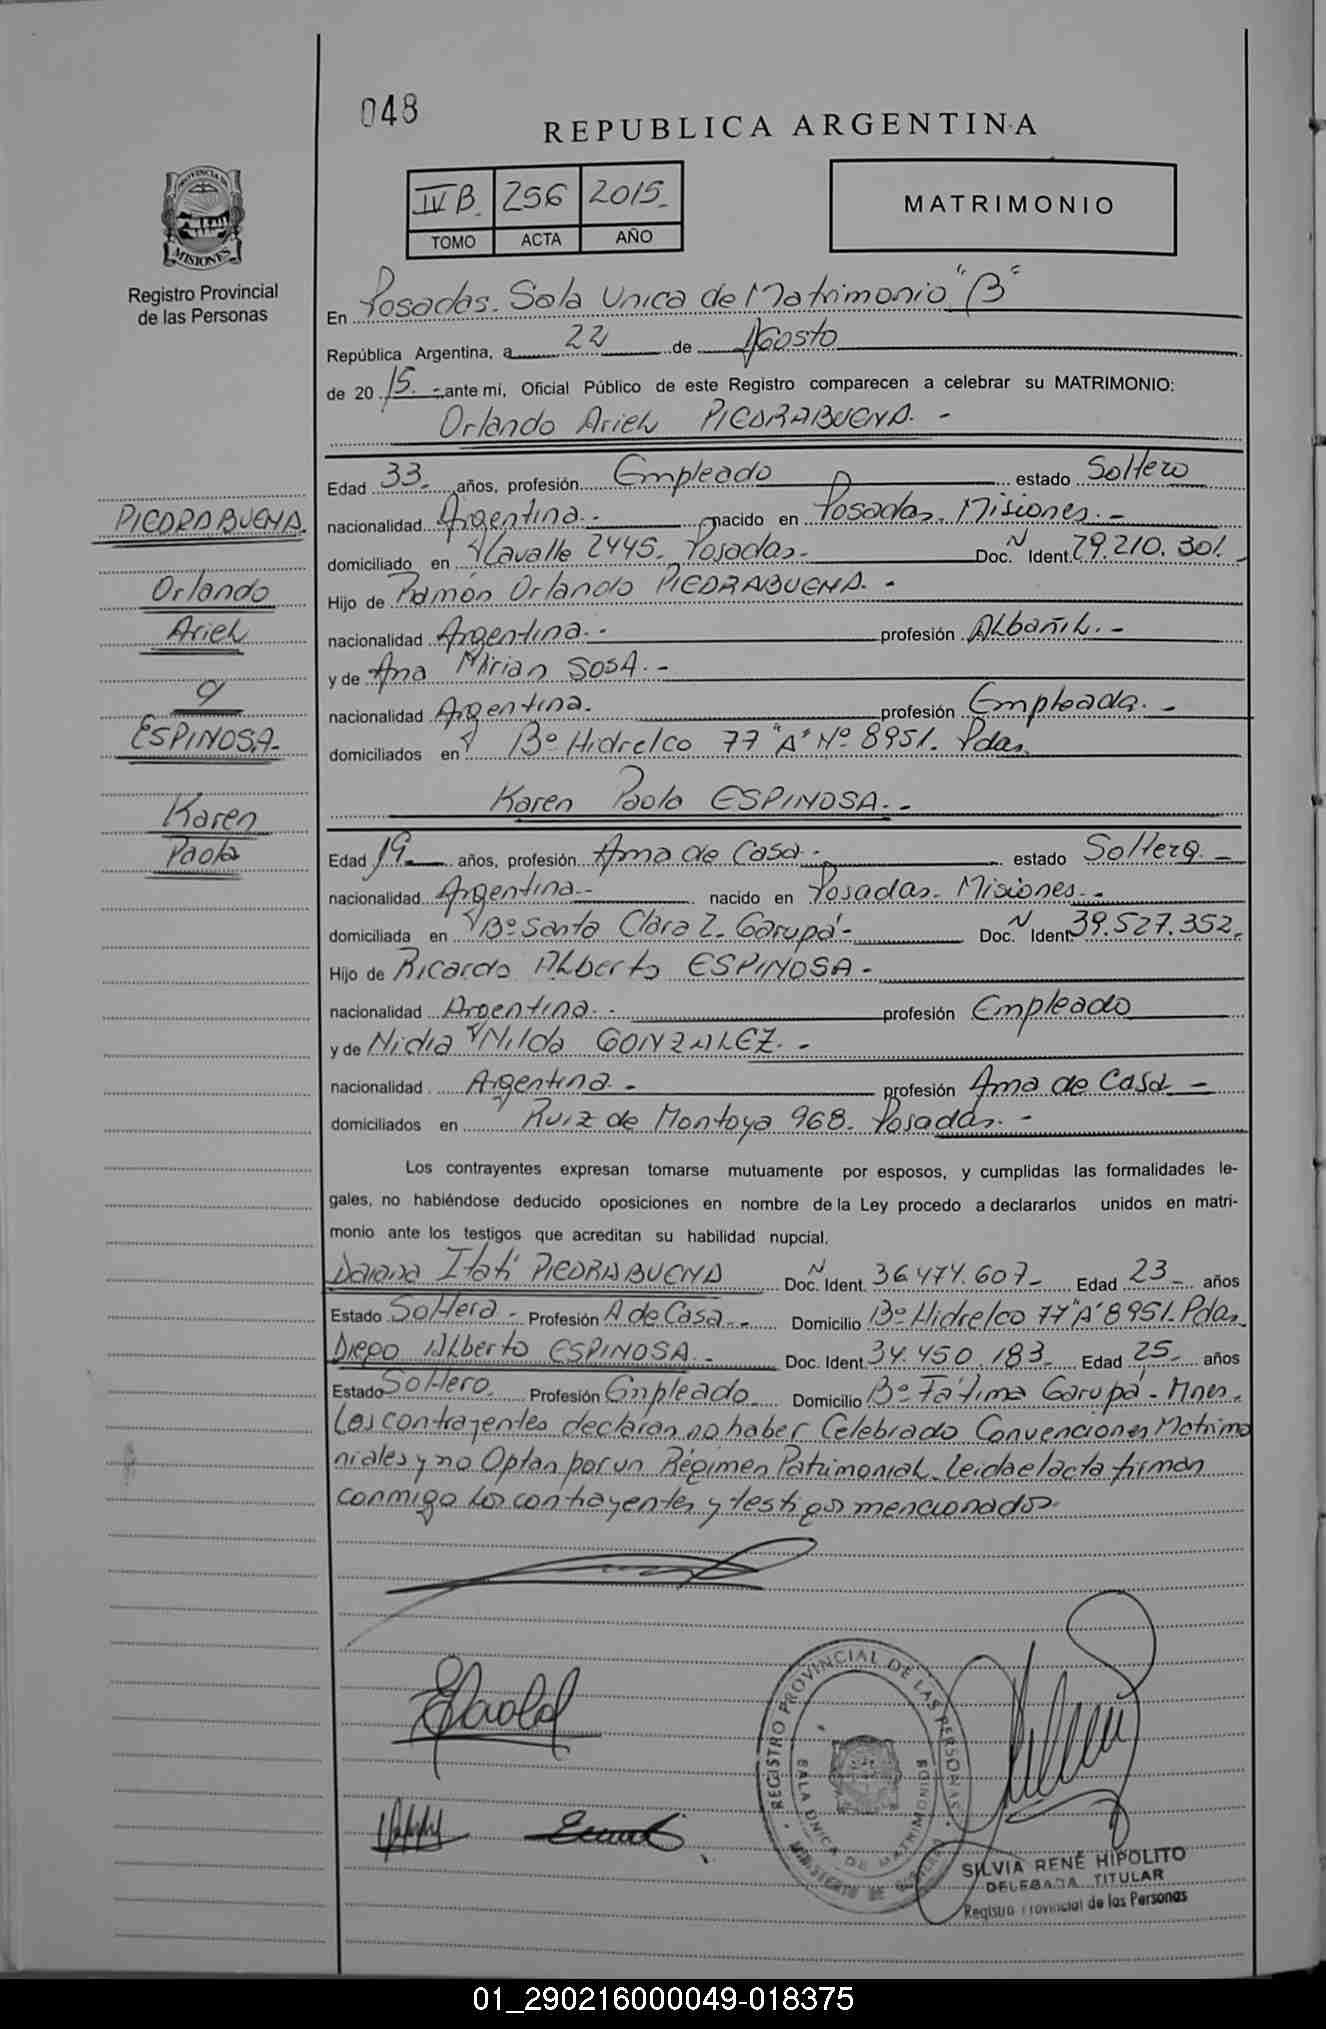 048
REPUBLICA ARGENTINA
IV B. 256 2015.
TOMO ACTA AÑO
MATRIMONIO
PROVINCIA DE
MISIONES
Registro Provincial
de las Personas
En Posadas. Sala Unica de Matrimonio "B"
República Argentina, a 22 de Agosto
de 2015.- ante mi, Oficial Público de este Registro comparecen a celebrar su MATRIMONIO:
Orlando Ariel PIEDRABUENA. -
Edad 33. años, profesión Empleado estado Soltero
nacionalidad Argentina.- nacido en Posadas. Misiones. -
domiciliado en Lavalle 2445. Posadas.- Doc. N Ident. 29.210.301.
Hijo de Ramón Orlando PIEDRABUENA. -
nacionalidad Argentina.- profesión Albañil. -
y de Ana Mirian SOSA. -
nacionalidad Argentina. profesión Empleada. -
domiciliados en Bº Hidrelco 77 "A" Nº 8951. Pdas.
PIEDRABUENA.
Orlando
Ariel
y
ESPINOSA.
Karen
Paola
Karen Paola ESPINOSA. -
Edad 19 años, profesión Ama de Casa.- estado Soltera. -
nacionalidad Argentina.- nacido en Posadas. Misiones. -
domiciliada en Bº Santa Clara 2. Garupá.- Doc. N Ident. 39.527.352.
Hijo de Ricardo Alberto ESPINOSA. -
nacionalidad Argentina. - profesión Empleado
y de Nidia Nilda GONZALEZ. -
nacionalidad Argentina. - profesión Ama de Casa. -
domiciliados en Ruiz de Montoya 968. Posadas. -
Los contrayentes expresan tomarse mutuamente por esposos, y cumplidas las formalidades le-
gales, no habiéndose deducido oposiciones en nombre de la Ley procedo a declararlos unidos en matri-
monio ante los testigos que acreditan su habilidad nupcial.
Daiana Itatí PIEDRABUENA Doc. N Ident. 36.474.607.- Edad 23.- años
Estado Soltera. - Profesión A de Casa.- Domicilio Bº Hidrelco 77 "A" 8951. Pdas.
Diego Alberto ESPINOSA. - Doc. Ident. 34.450.183. Edad 25. años
Estado Soltero. Profesión Empleado. Domicilio Bº Fátima Garupá - Mnes.
Los contrayentes declaran no haber Celebrado Convenciones Matrimo
niales y no Optan por un Régimen Patrimonial. Leida el acta firman
conmigo los contrayentes y testigos mencionados.
REGISTRO PROVINCIAL DE LAS PERSONAS
SALA UNICA DE MATRIMONIOS
MINISTERIO DE
SILVIA RENÉ HIPOLITO
DELEGADA TITULAR
Registro Provincial de las Personas
01_290216000049-018375